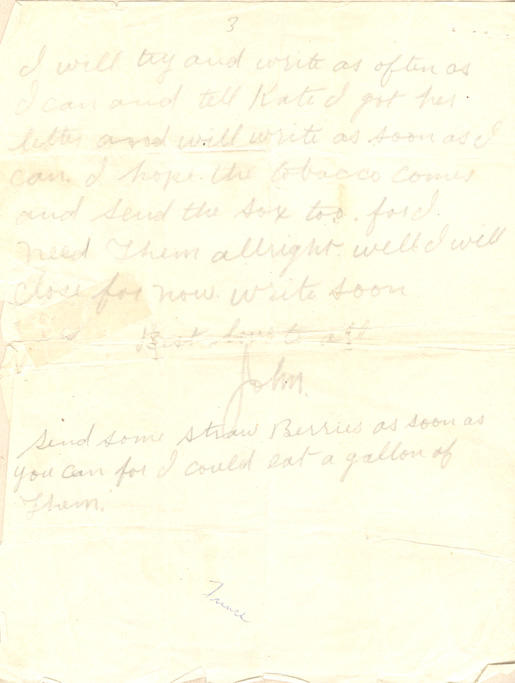 3
I will try and write as often as
I can and tell Kate I got her
letter and will write as soon as I
can. I hope the tobacco comes
and send the sox too. for I
need Them allright. well I will
close for now. write soon
Best love to all
John.
send some straw Berries as soon as
you can for I could eat a gallon of
Them.